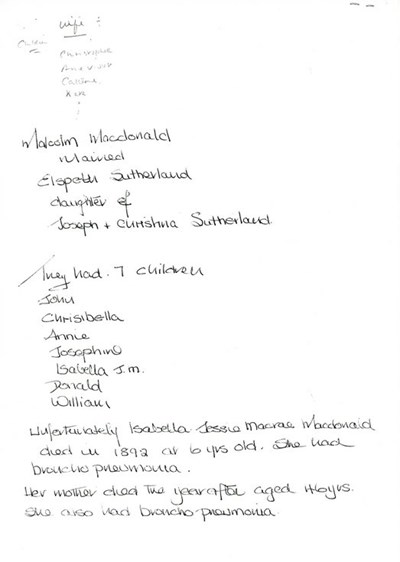 wife :
Malcolm Macdonald
Married
Elspeth Sutherland
daughter of
Joseph + Christina Sutherland
They had 7 children
John
Chrisibella
Annie
Josephine
Isabella J.M.
Donald
William
Unfortunately Isabella Jessie Macrae Macdonald
died in 1892 at 6 yrs old. She had
broncho pneumonia.
Her mother died the year after aged 40yrs.
She also had broncho-pneumonia